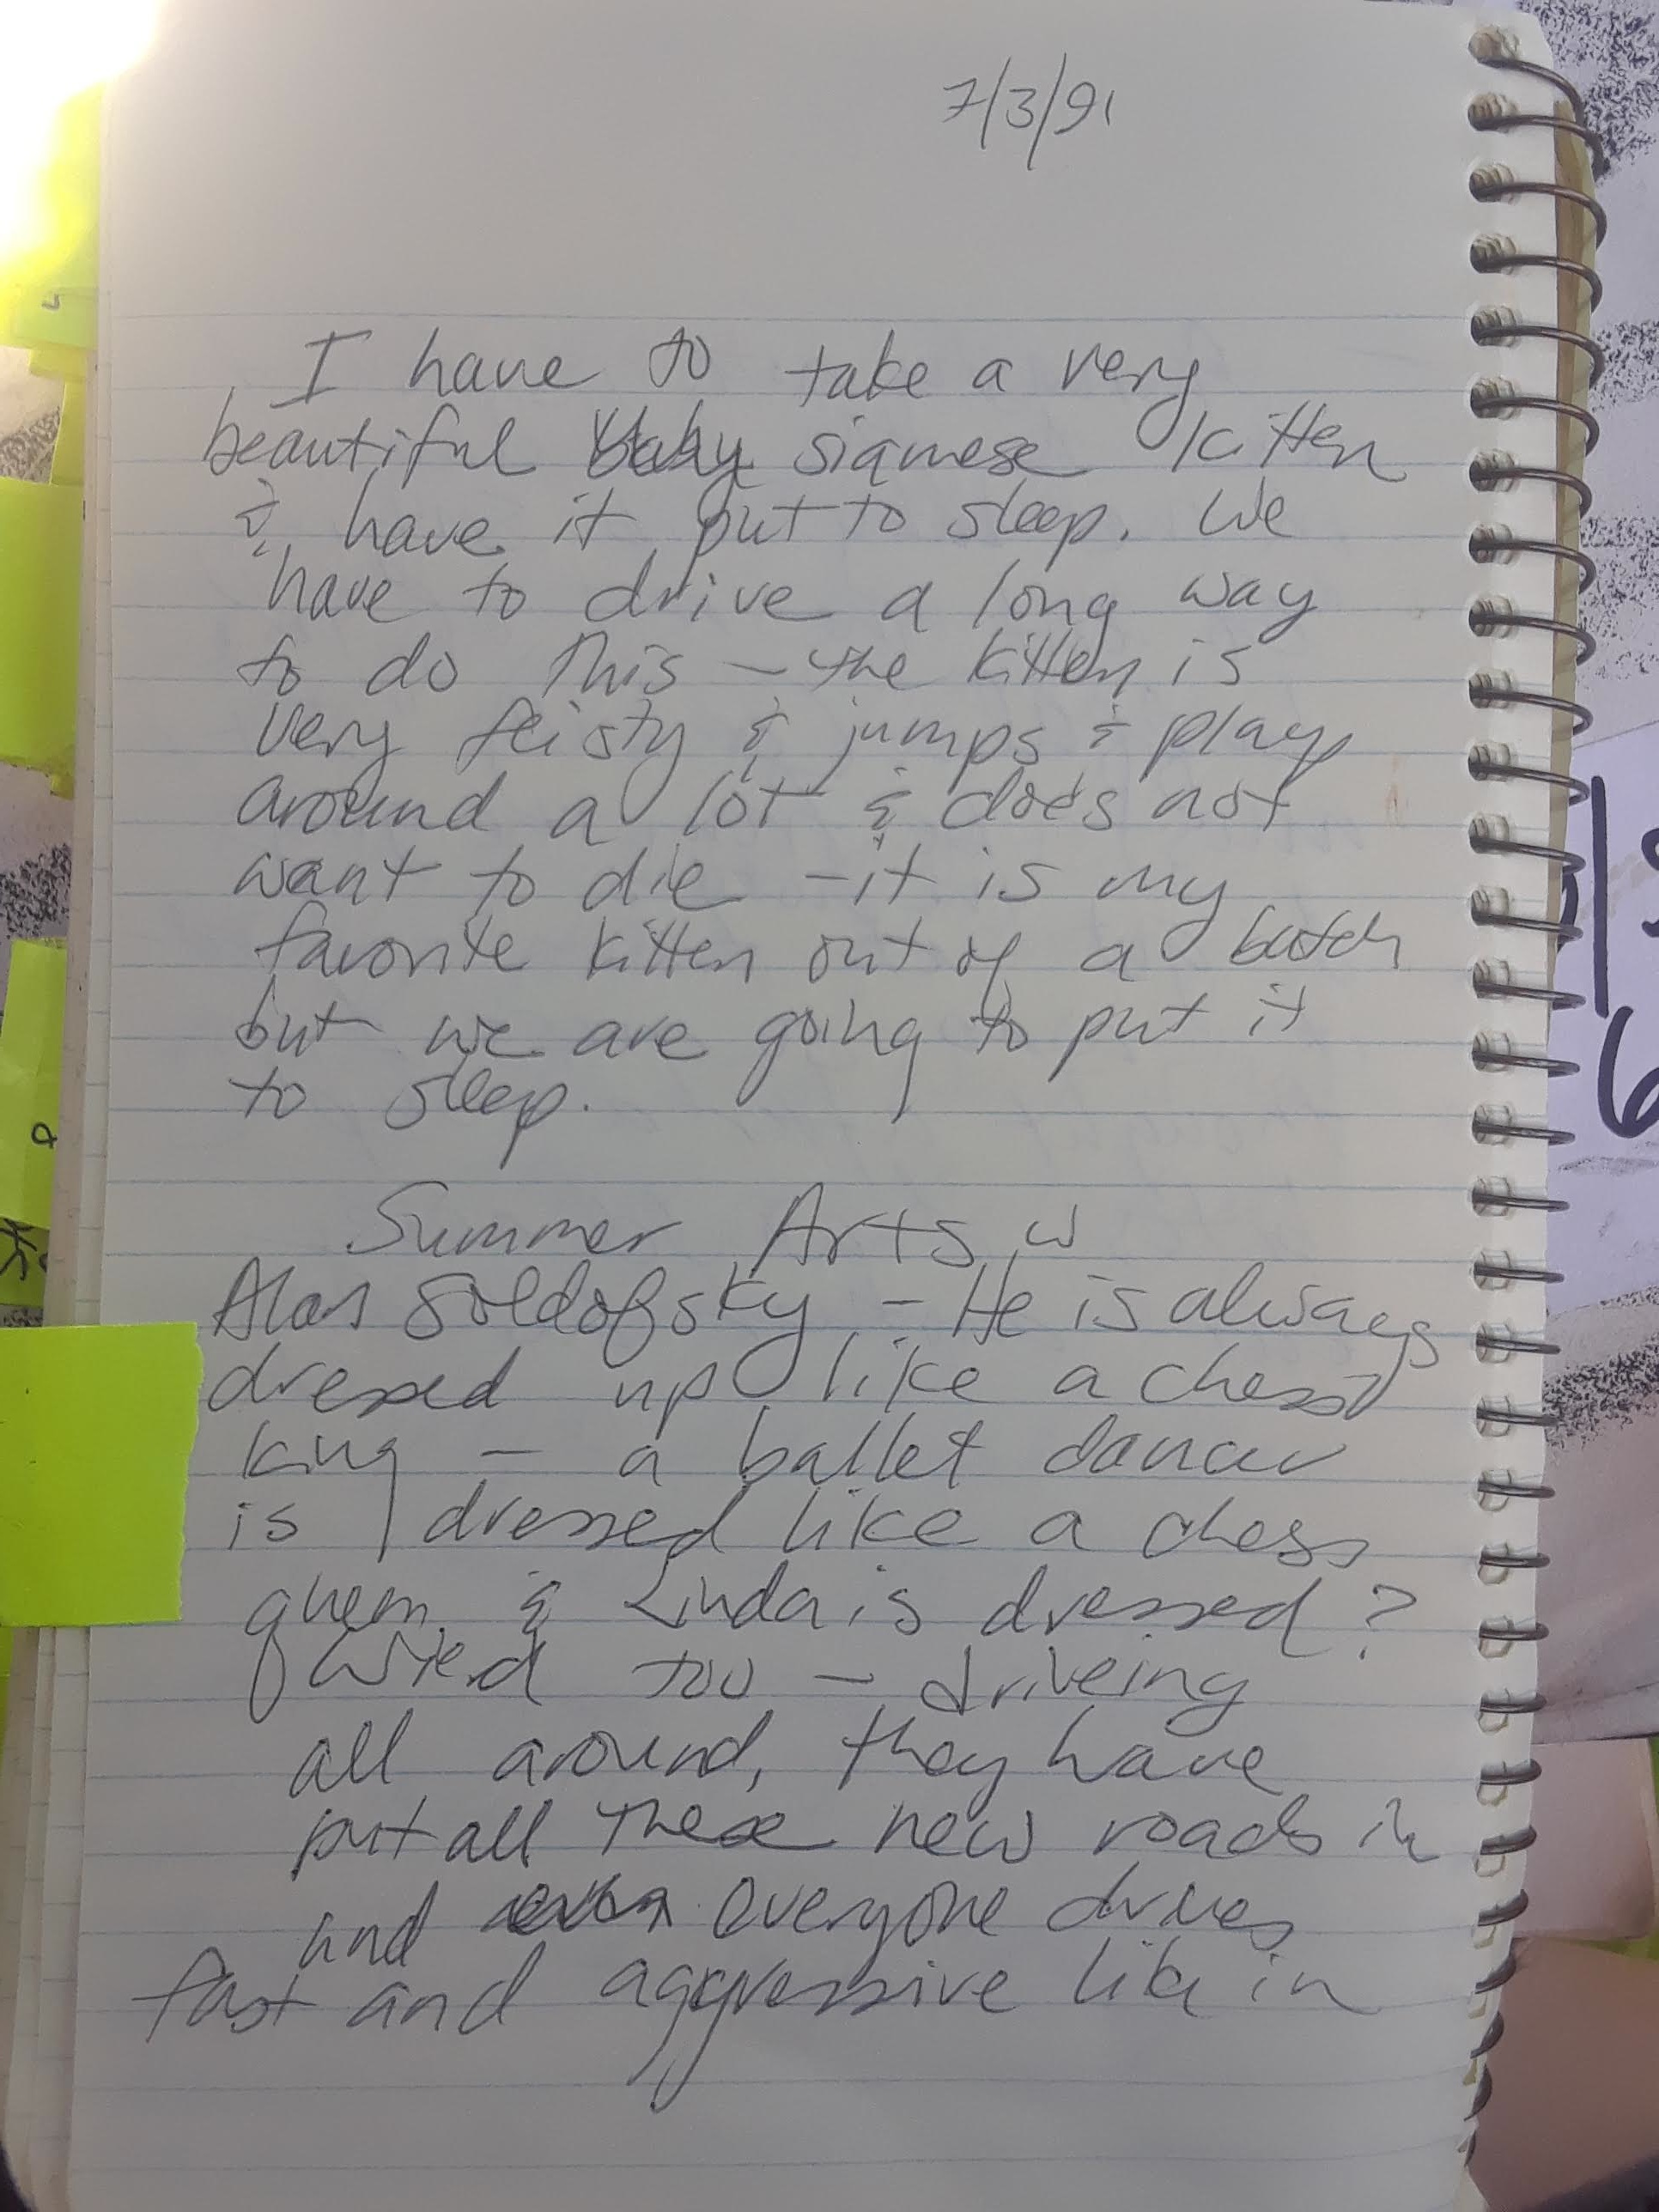 7/3/91
I have to take a very
beautiful baby siamese kitten
& have it put to sleep. We
have to drive a long way
to do this - the kitten is
very feisty & jumps & plays
around a lot & does not
want to die - it is my
favorite kitten out of a batch
but we are going to put it
to sleep.
Summer Arts w
Alan Soldofsky - He is always
dressed up like a chess
king - a ballet dancer
is dressed like a chess
queen & Linda is dressed ?
wierd too - driveing
all around, they have
put all these new roads in
and everyone drives
fast and aggressive like in
6